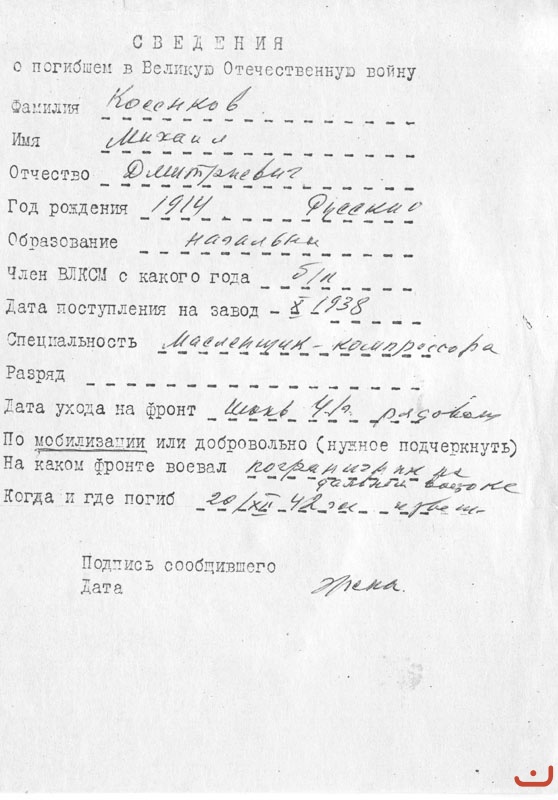 СВЕДЕНИЯ
о погибшем в Великую Отечественную войну
Фамилия Косенков
Имя Михаил
Отчество Дмитриевич
Год рождения 1914 Русский
Образование начальн
Член ВЛКСМ с какого года б/п
Дата поступления на завод - X 1938
Специальность Масленщик-компрессора
Разряд
Дата ухода на фронт июнь 41г. рядовой
По мобилизации или добровольно (нужное подчеркнуть)
На каком фронте воевал пограничник на
дальнем востоке
Когда и где погиб 20/XII 42г
Подпись сообщившего
Дата жена.